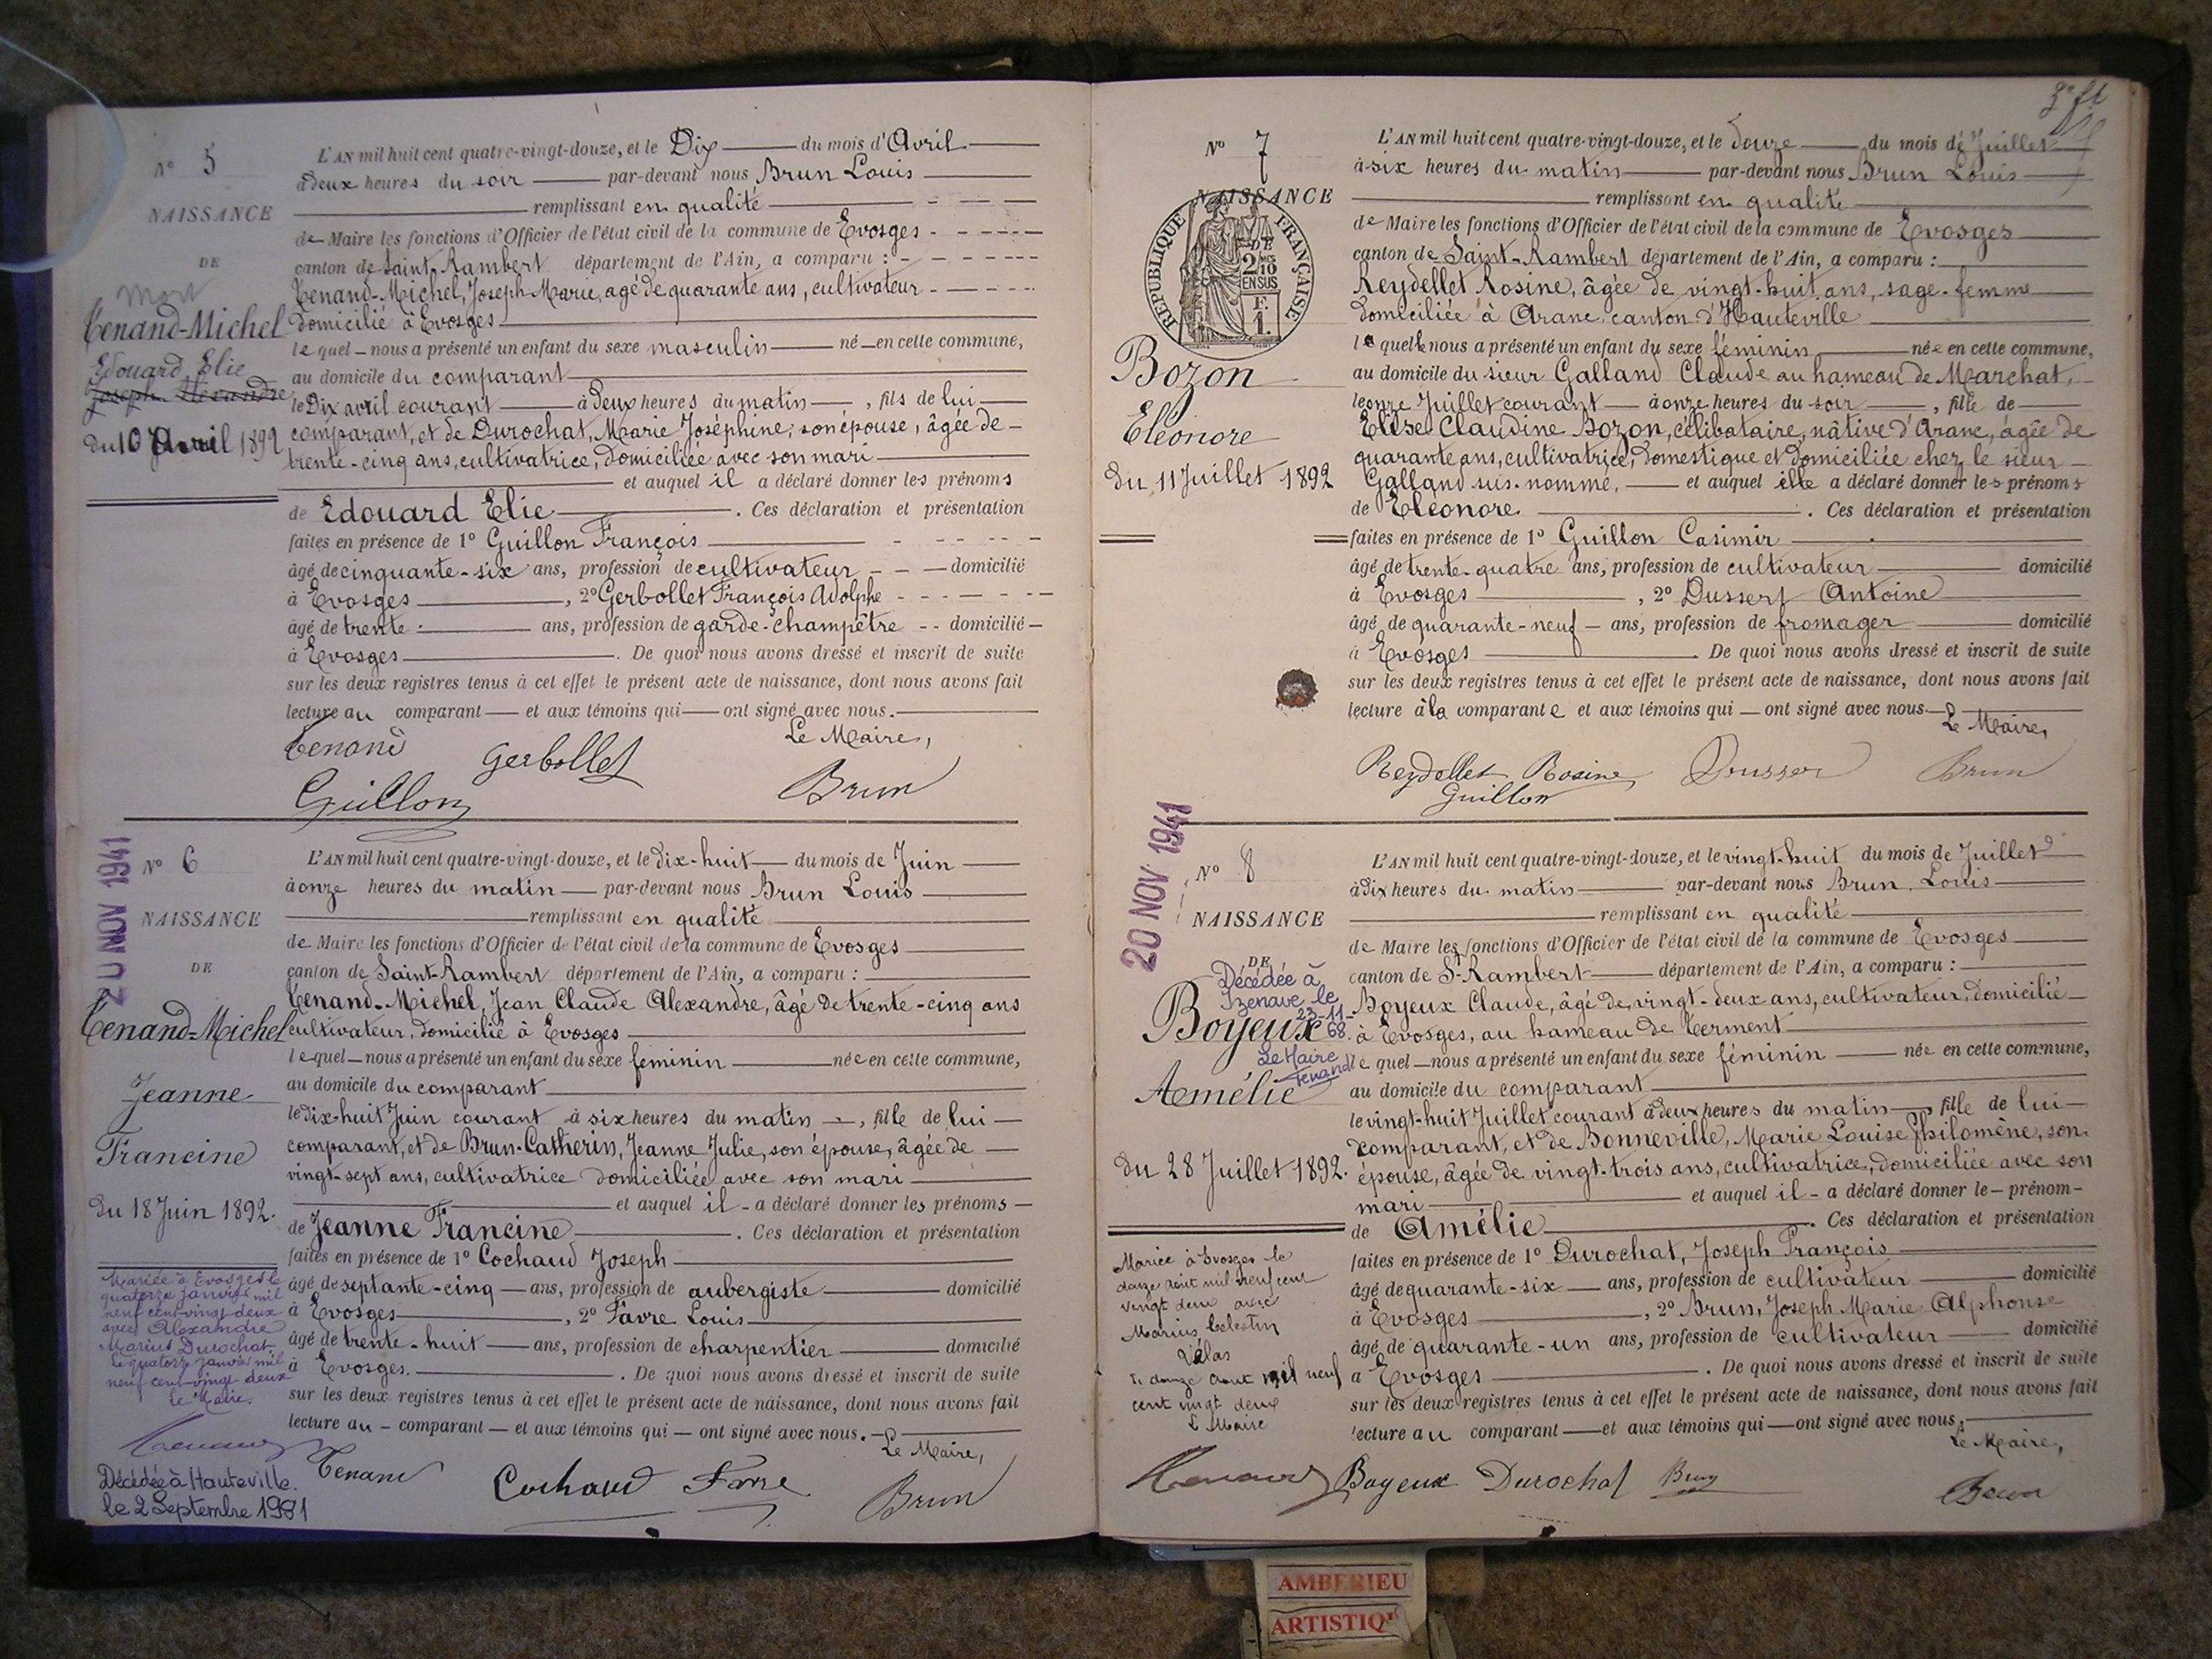 N° 5
NAISSANCE
DE
Mort
Tenand-Michel
Edouard Elie
Joseph Alexandre
du 10 Avril 1892
L'AN mil huit cent quatre-vingt-douze, et le Dix du mois d'Avril
à deux heures du soir par-devant nous Brun Louis
remplissant en qualité
de Maire les fonctions d'Officier de l'état civil de la commune de Evosges
canton de Saint-Rambert département de l'Ain, a comparu :
Tenand-Michel, Joseph-Marie, agé de quarante ans, cultivateur
domicilié à Evosges
lequel nous a présenté un enfant du sexe masculin né en cette commune,
au domicile du comparant
le Dix avril courant à deux heures du matin, fils de lui
comparant, et de Durochat, Marie Joséphine, son épouse, âgée de
trente-cinq ans, cultivatrice, domiciliée avec son mari
et auquel il a déclaré donner les prénoms
de Edouard Elie. Ces déclaration et présentation
faites en présence de 1° Guillon François
âgé de cinquante-six ans, profession de cultivateur domicilié
à Evosges, 2° Gerbollet François Adolphe
âgé de trente ans, profession de garde-champêtre domicilié
à Evosges. De quoi nous avons dressé et inscrit de suite
sur les deux registres tenus à cet effet le présent acte de naissance, dont nous avons fait
lecture au comparant et aux témoins qui ont signé avec nous.
Le Maire,
Tenand Gerbollet
Guillon Brun
20 NOV 1941
N° 6
NAISSANCE
DE
Tenand-Michel
Jeanne
Francine
du 18 Juin 1892.
Mariée à Evosges le
quatorze janvier mil
neuf cent vingt-deux
avec Alexandre
Marius Durochat
Le quatorze janvier mil
neuf cent-vingt-deux
Le Maire.
Tenand
Décédée à Hauteville.
le 2 Septembre 1981
L'AN mil huit cent quatre-vingt-douze, et le dix-huit du mois de Juin
à onze heures du matin par-devant nous Brun Louis
remplissant en qualité
de Maire les fonctions d'Officier de l'état civil de la commune de Evosges
canton de Saint-Rambert département de l'Ain, a comparu :
Tenand-Michel, Jean Claude Alexandre, âgé de trente-cinq ans
cultivateur, domicilié à Evosges
lequel nous a présenté un enfant du sexe féminin née en cette commune,
au domicile du comparant
le dix-huit Juin courant à six heures du matin, fille de lui
comparant, et de Brun-Catherin, Jeanne Julie, son épouse, âgée de
vingt-sept ans, cultivatrice domiciliée avec son mari
et auquel il a déclaré donner les prénoms
de Jeanne Francine. Ces déclaration et présentation
faites en présence de 1° Cochaud Joseph
âgé de septante-cinq ans, profession de aubergiste domicilié
à Evosges, 2° Favre Louis
âgé de trente-huit ans, profession de charpentier domicilié
à Evosges. De quoi nous avons dressé et inscrit de suite
sur les deux registres tenus à cet effet le présent acte de naissance, dont nous avons fait
lecture au comparant et aux témoins qui ont signé avec nous.
Le Maire,
Tenand Cochaud Favre Brun
N° 7
NAISSANCE
DE
RÉPUBLIQUE FRANÇAISE
2/10 EN SUS
F. 1.
Bozon
Eléonore
du 11 Juillet 1892
L'AN mil huit cent quatre-vingt-douze, et le douze du mois de Juillet
à six heures du matin par-devant nous Brun Louis
remplissant en qualité
de Maire les fonctions d'Officier de l'état civil de la commune de Evosges
canton de Saint-Rambert département de l'Ain, a comparu :
Reydellet Rosine, âgée de vingt-huit ans, sage-femme
domiciliée à Aranc canton d'Hauteville
laquelle nous a présenté un enfant du sexe féminin née en cette commune,
au domicile du sieur Galland Claude au hameau de Marchat,
le onze Juillet courant à onze heures du soir, fille de
Elise Claudine Bozon, célibataire, nâtive d'Aranc, âgée de
quarante ans, cultivatrice, domestique et domiciliée chez le sieur
Galland sus-nommé, et auquel elle a déclaré donner les prénoms
de Eléonore. Ces déclaration et présentation
faites en présence de 1° Guillon Casimir
âgé de trente-quatre ans, profession de cultivateur domicilié
à Evosges, 2° Dussert Antoine
âgé de quarante-neuf ans, profession de fromager domicilié
à Evosges. De quoi nous avons dressé et inscrit de suite
sur les deux registres tenus à cet effet le présent acte de naissance, dont nous avons fait
lecture à la comparante et aux témoins qui ont signé avec nous.
Le Maire,
Reydellet Rosine Dusser Brun
Guillon
20 NOV 1941
N° 8
NAISSANCE
DE
Décédée à
Izenave le
23-11-
68.
Le Maire
Tenand
Boyeux
Amélie
du 28 Juillet 1892.
Mariée à Evosges le
douze août mil neuf cent
vingt deux avec
Marius Celestin
Vélas
le douze août mil neuf
cent vingt deux
Le Maire
Tenand
L'AN mil huit cent quatre-vingt-douze, et le vingt-huit du mois de Juillet
à dix heures du matin par-devant nous Brun Louis
remplissant en qualité
de Maire les fonctions d'Officier de l'état civil de la commune de Evosges
canton de St-Rambert département de l'Ain, a comparu :
Boyeux Claude, âgé de vingt-deux ans, cultivateur, domicilié
à Evosges, au hameau de Terment
lequel nous a présenté un enfant du sexe féminin née en cette commune,
au domicile du comparant
le vingt-huit Juillet courant à deux heures du matin, fille de lui
comparant, et de Bonneville, Marie Louise Philomène, son
épouse, âgée de vingt-trois ans, cultivatrice, domiciliée avec son
mari et auquel il a déclaré donner le prénom
de Amélie. Ces déclaration et présentation
faites en présence de 1° Durochat, Joseph François
âgé de quarante-six ans, profession de cultivateur domicilié
à Evosges, 2° Brun, Joseph Marie Alphonse
âgé de quarante-un ans, profession de cultivateur domicilié
à Evosges. De quoi nous avons dressé et inscrit de suite
sur les deux registres tenus à cet effet le présent acte de naissance, dont nous avons fait
lecture au comparant et aux témoins qui ont signé avec nous.
Le Maire,
Boyeux Durochat Brun Brun
AMBERIEU
ARTISTIQ